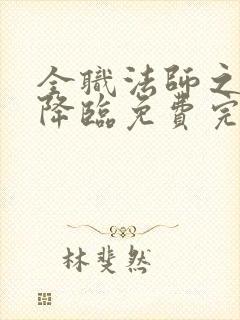 全職法師之
降臨免費完
林斐然